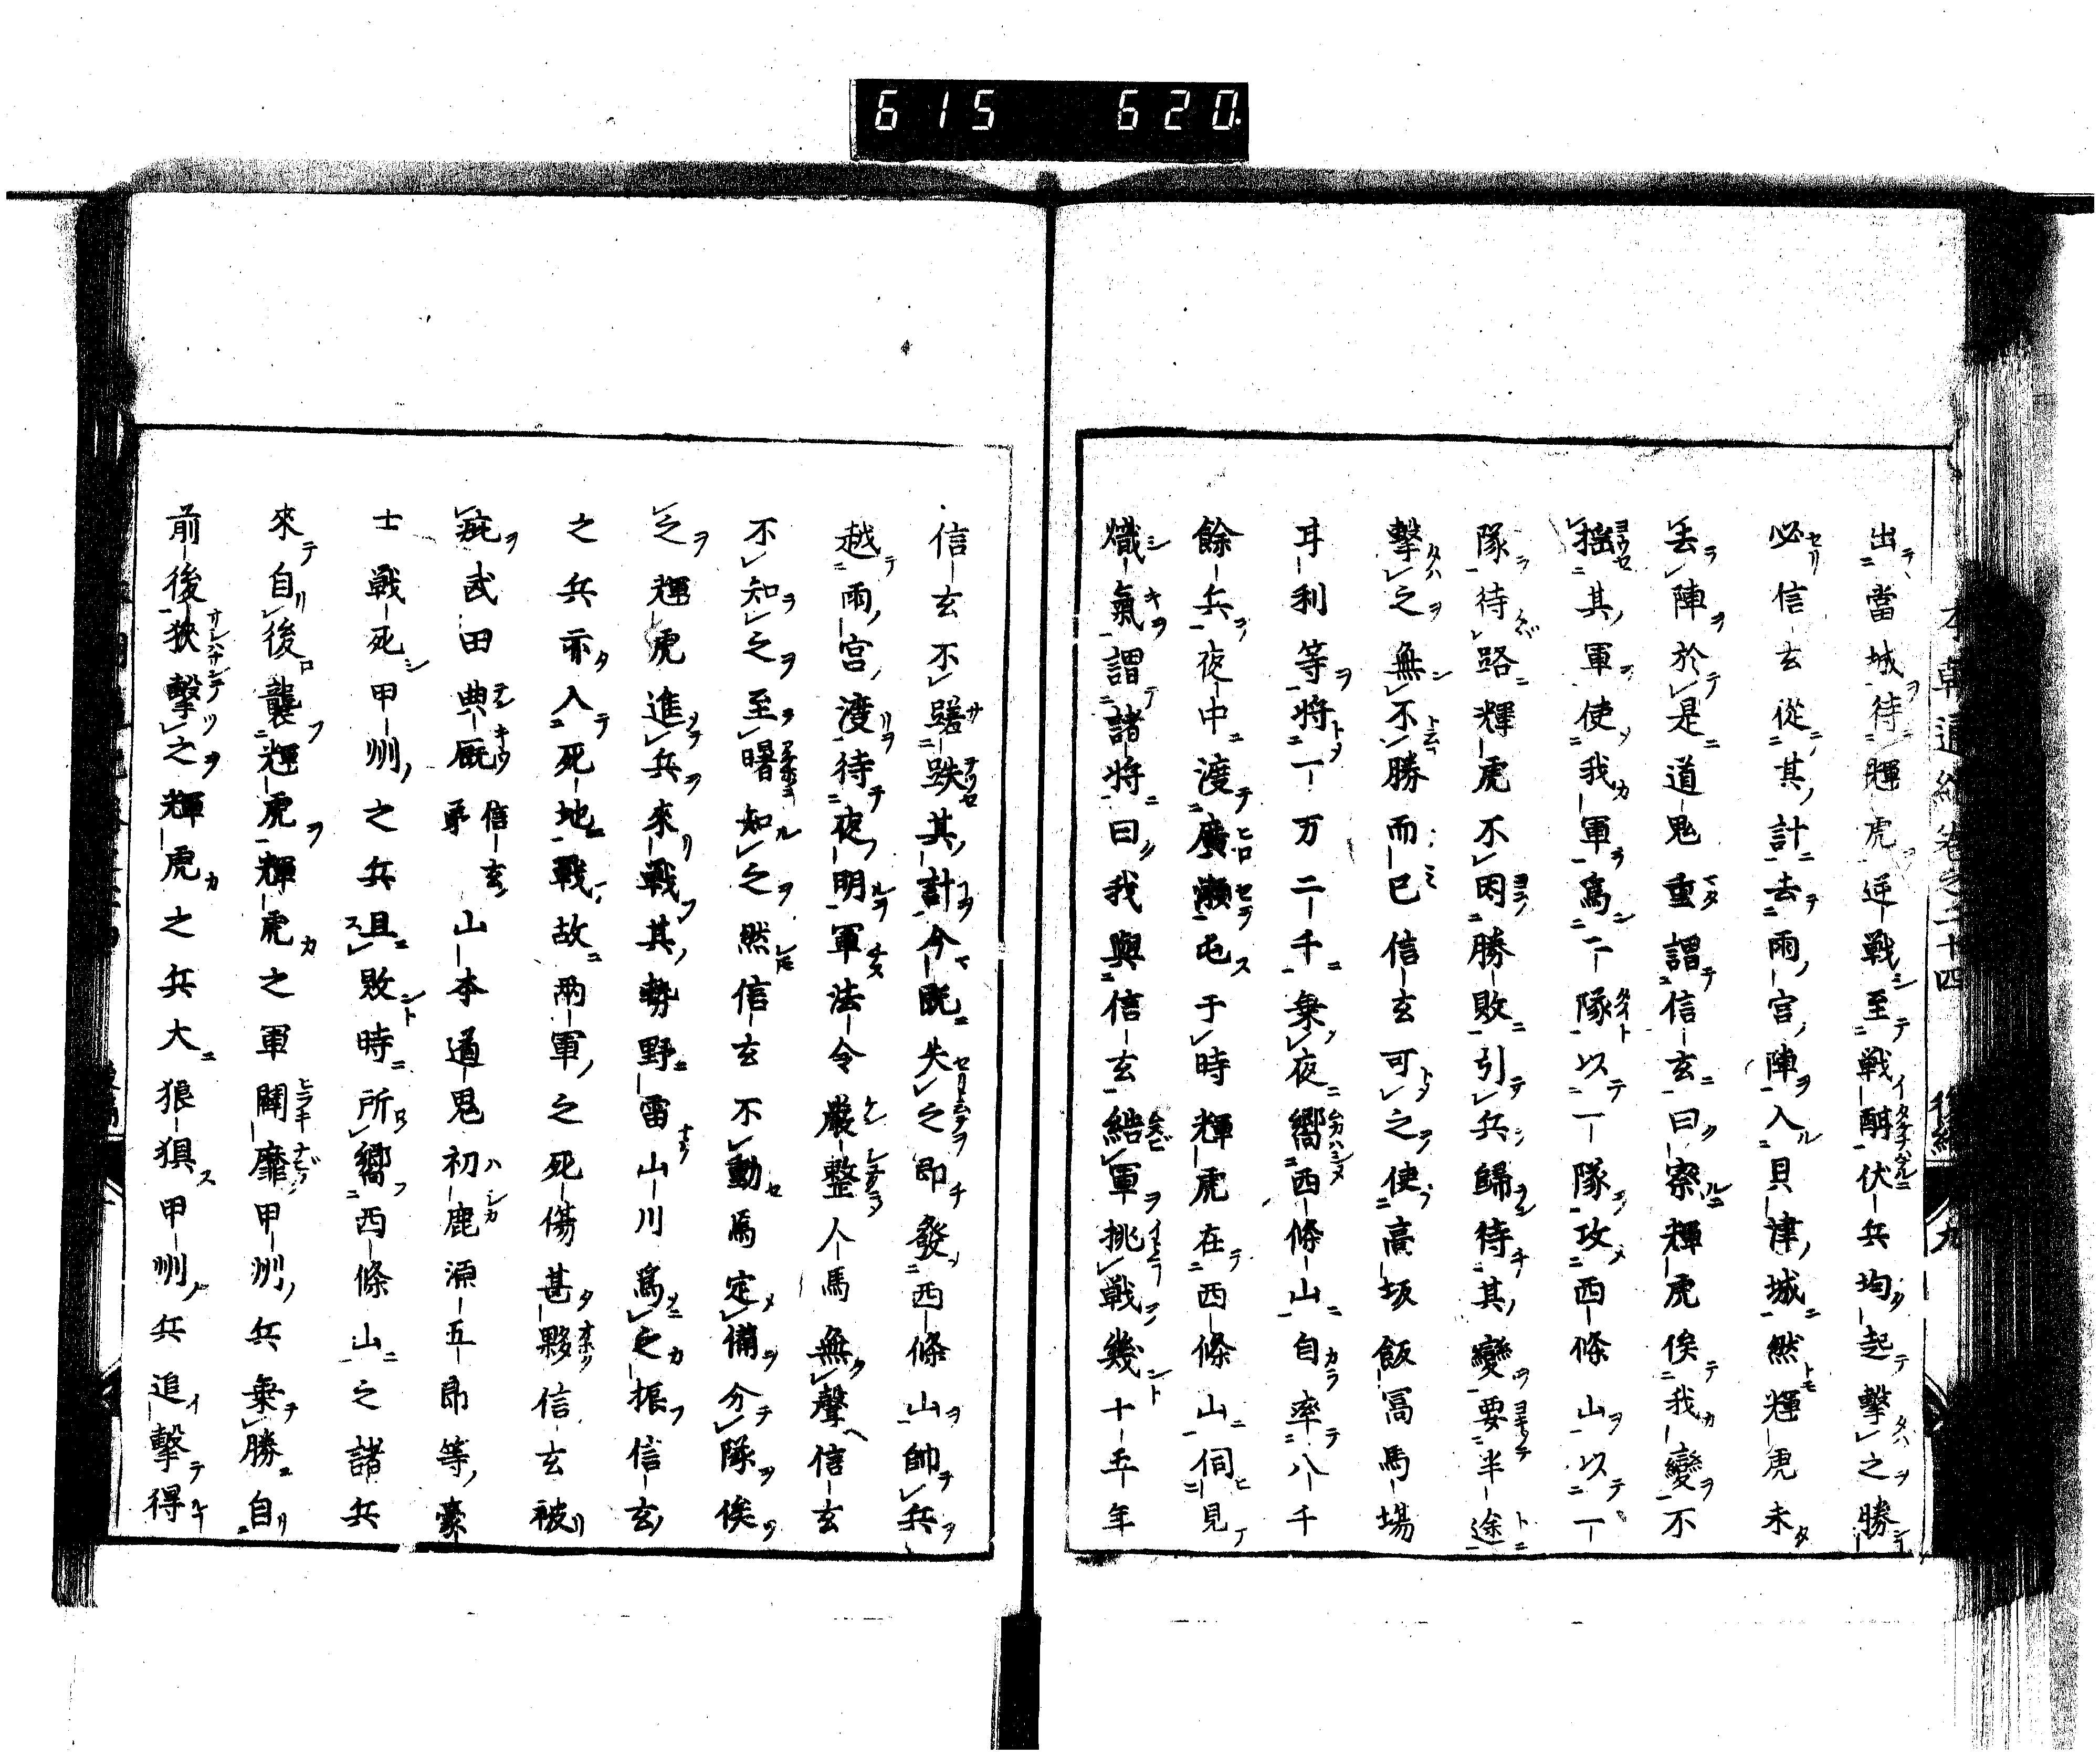 615 620
本朝通紀卷之二十四 後編 九
出當城待輝虎逆戰至戰酣伏兵均起擊之勝
必信玄從其計去雨宮陣入貝津城然輝虎未
丢陣於是道鬼重謂信玄曰察輝虎俟我變不
揺其軍使我軍爲二隊以一隊攻西條山以一
隊待路輝虎不因勝敗引兵歸待其變要半途
擊之無不勝而已信玄可之使高坂飯冨馬場
耳利等將一万二千乗夜嚮西條山自率八千
餘兵夜中渡廣瀬屯于時輝虎在西條山伺見
熾氣謂諸將曰我與信玄結軍挑戰幾十五年
信玄不蹉跌其計今既失之即發西條山帥兵
越雨宮渡待夜明軍法令嚴整人馬無聲信玄
不知之至曙知之然信玄不動爲定備分隊俟
之輝虎進兵來戰其勢野雷山川爲之振信玄
之兵亦入死地戰故兩軍之死傷甚夥信玄被
疵武田典厩信玄弟山本道鬼初鹿源五郎等豪
士戰死甲州之兵且敗時所嚮西條山之諸兵
來自後襲輝虎輝虎之軍闢靡甲州兵乗勝自
前後狹擊之輝虎之兵大狼狽甲州兵追擊得